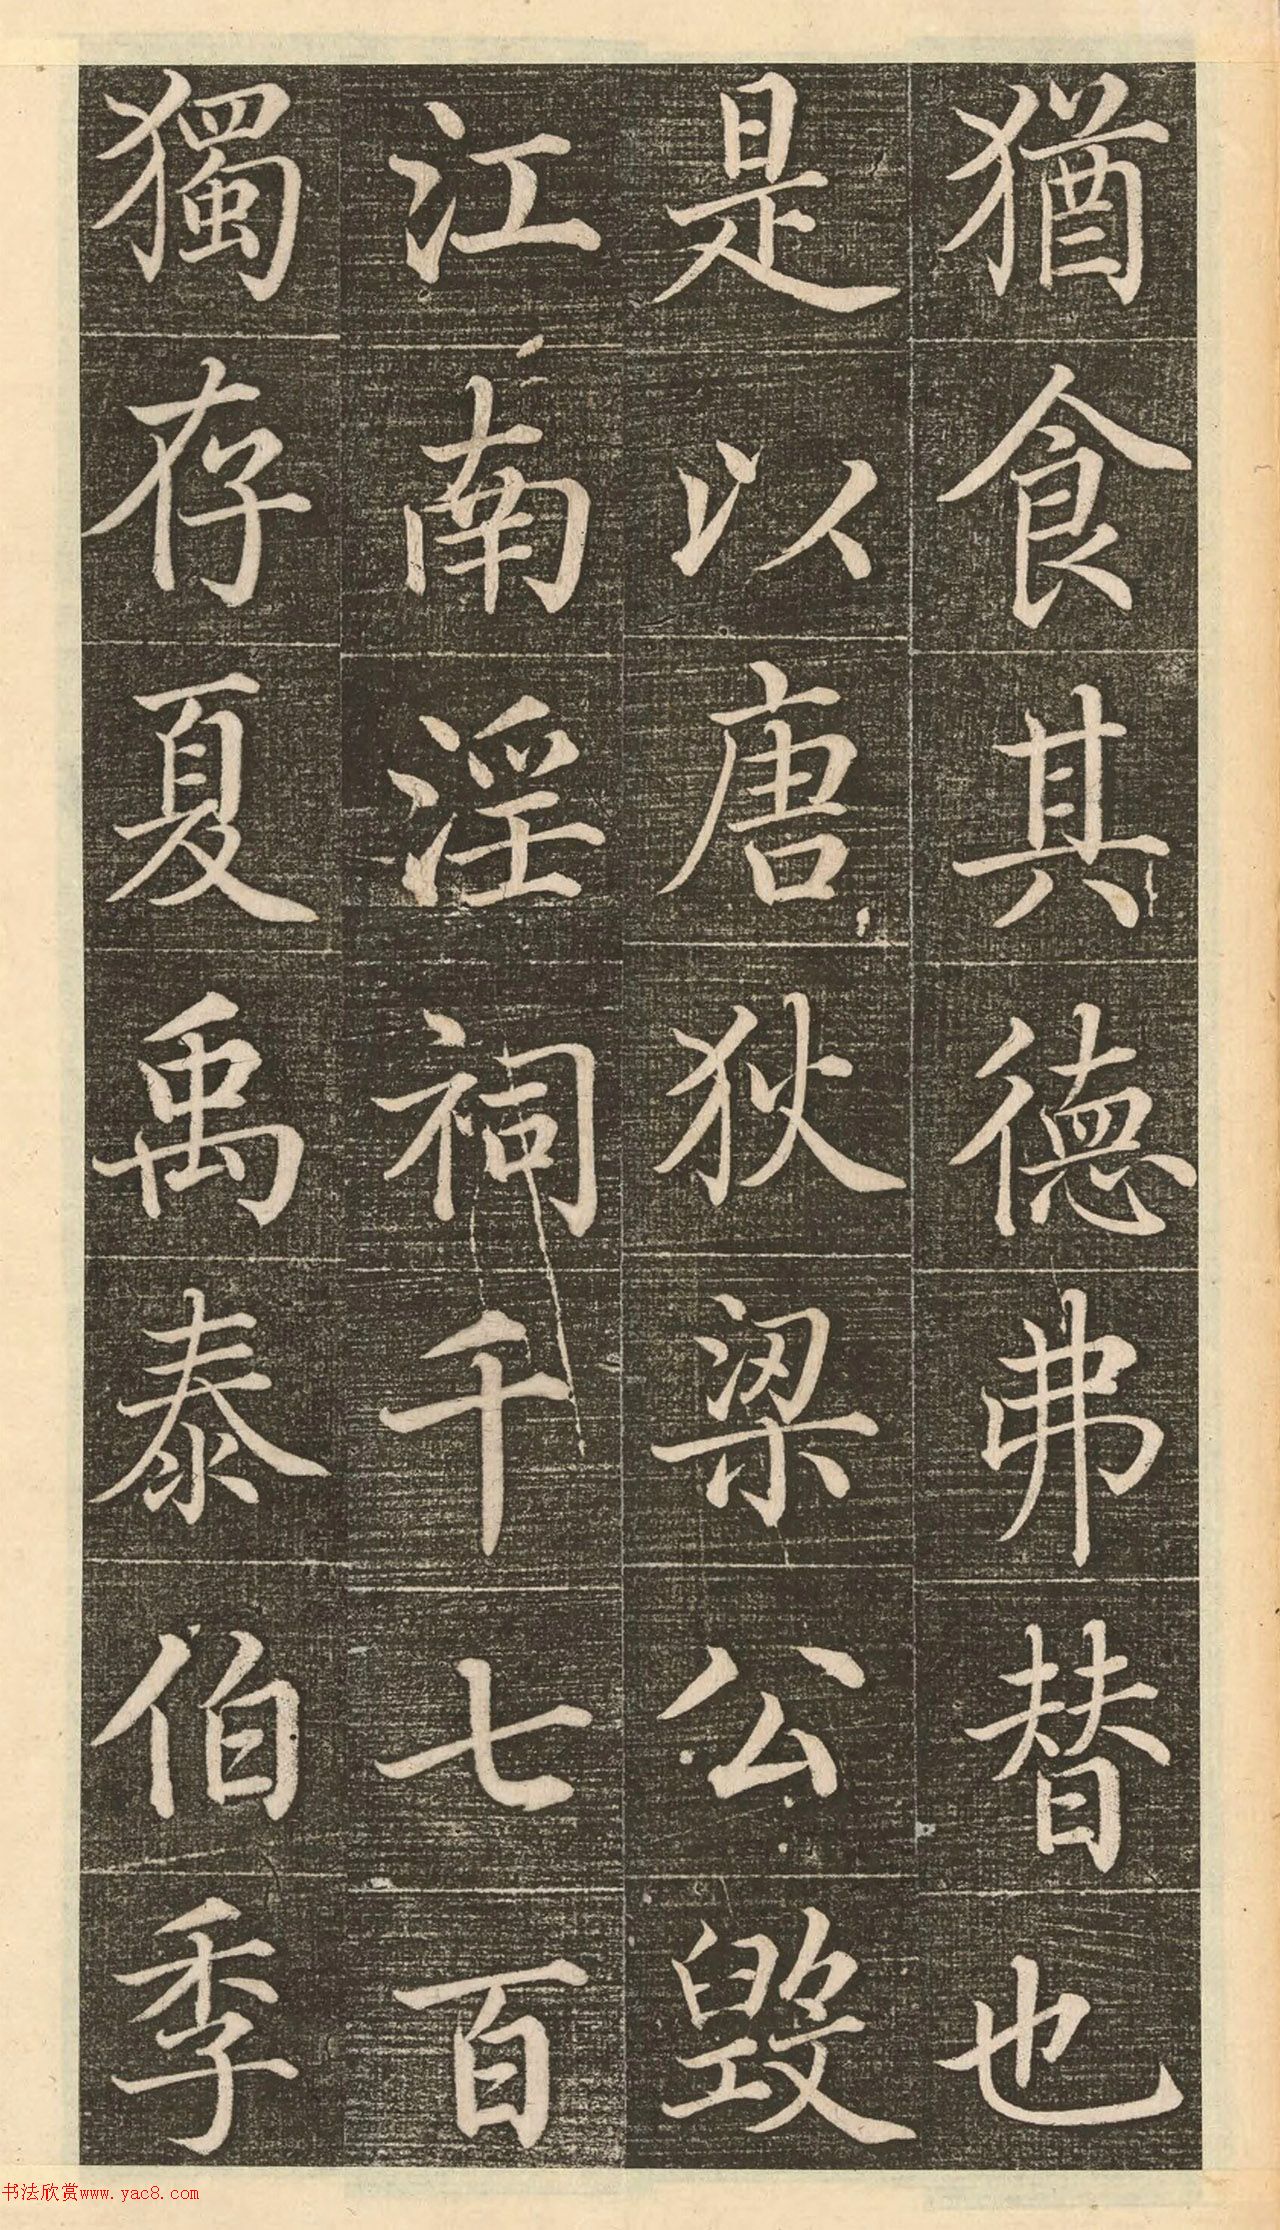 猶食其德弗替也
是以唐狄梁公毁
江南淫祠千七百
獨存夏禹泰伯季
书法欣赏www.yac8.com